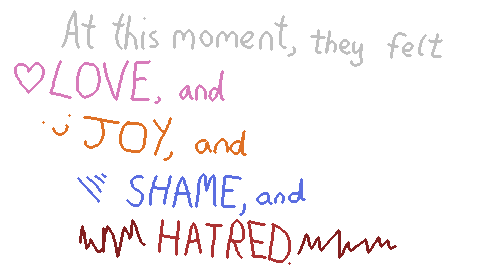 At this moment, they felt
LOVE, and
JOY, and
SHAME, and
HATRED.